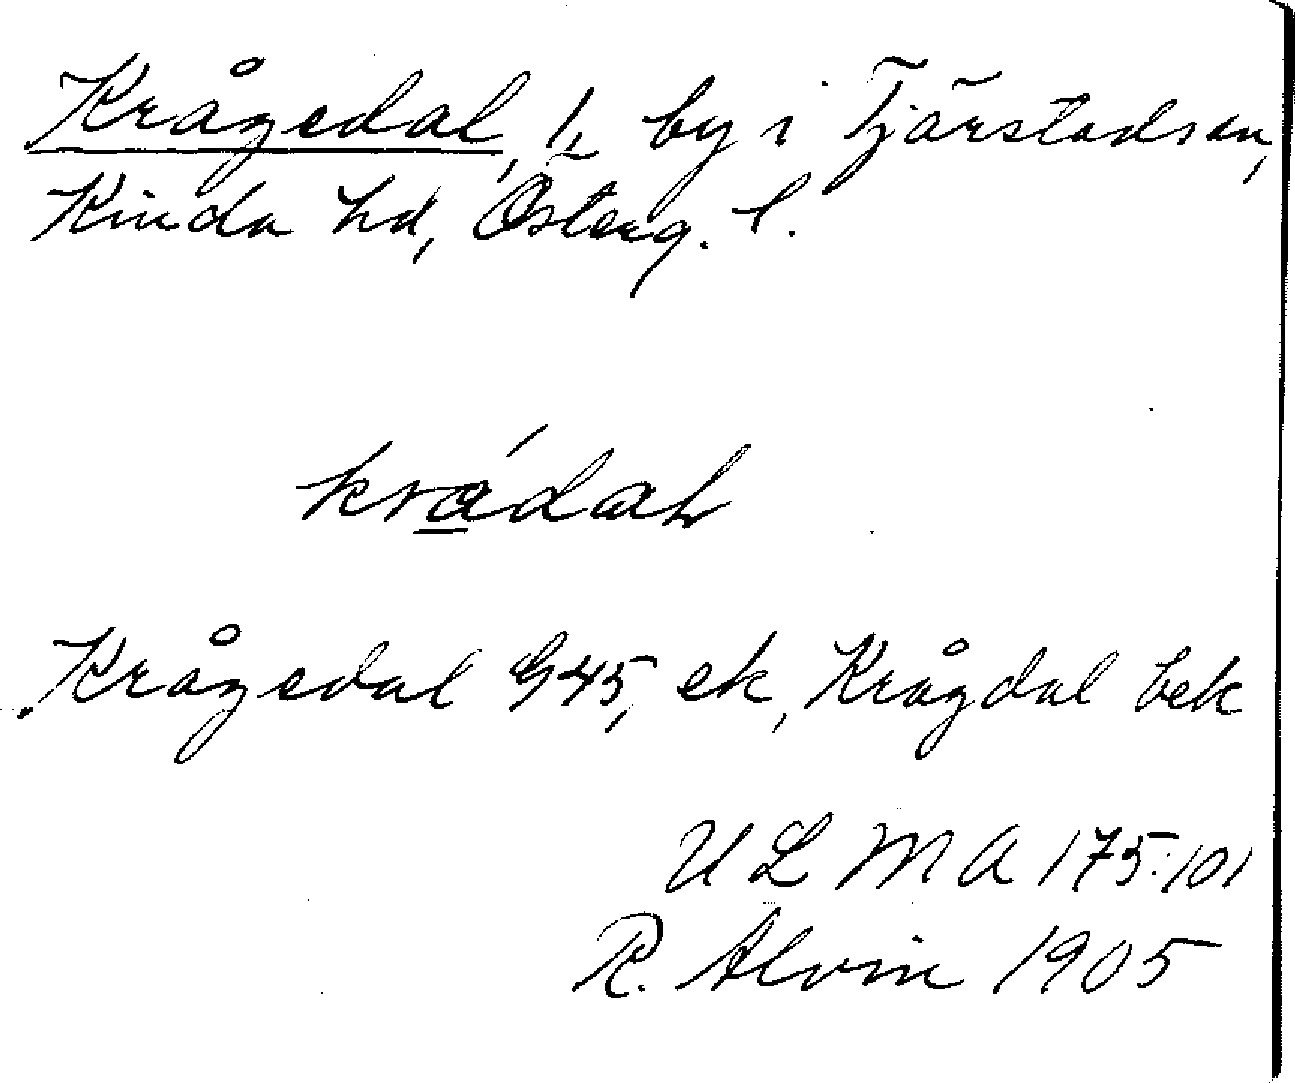 Krågedal, 1/2 by i Tjärstads sn,
Kinda hd, Österg. l.
krádaL
Krågedal G45, ek, Krågdal bek
ULMA 175:101
R. Alvin 1905